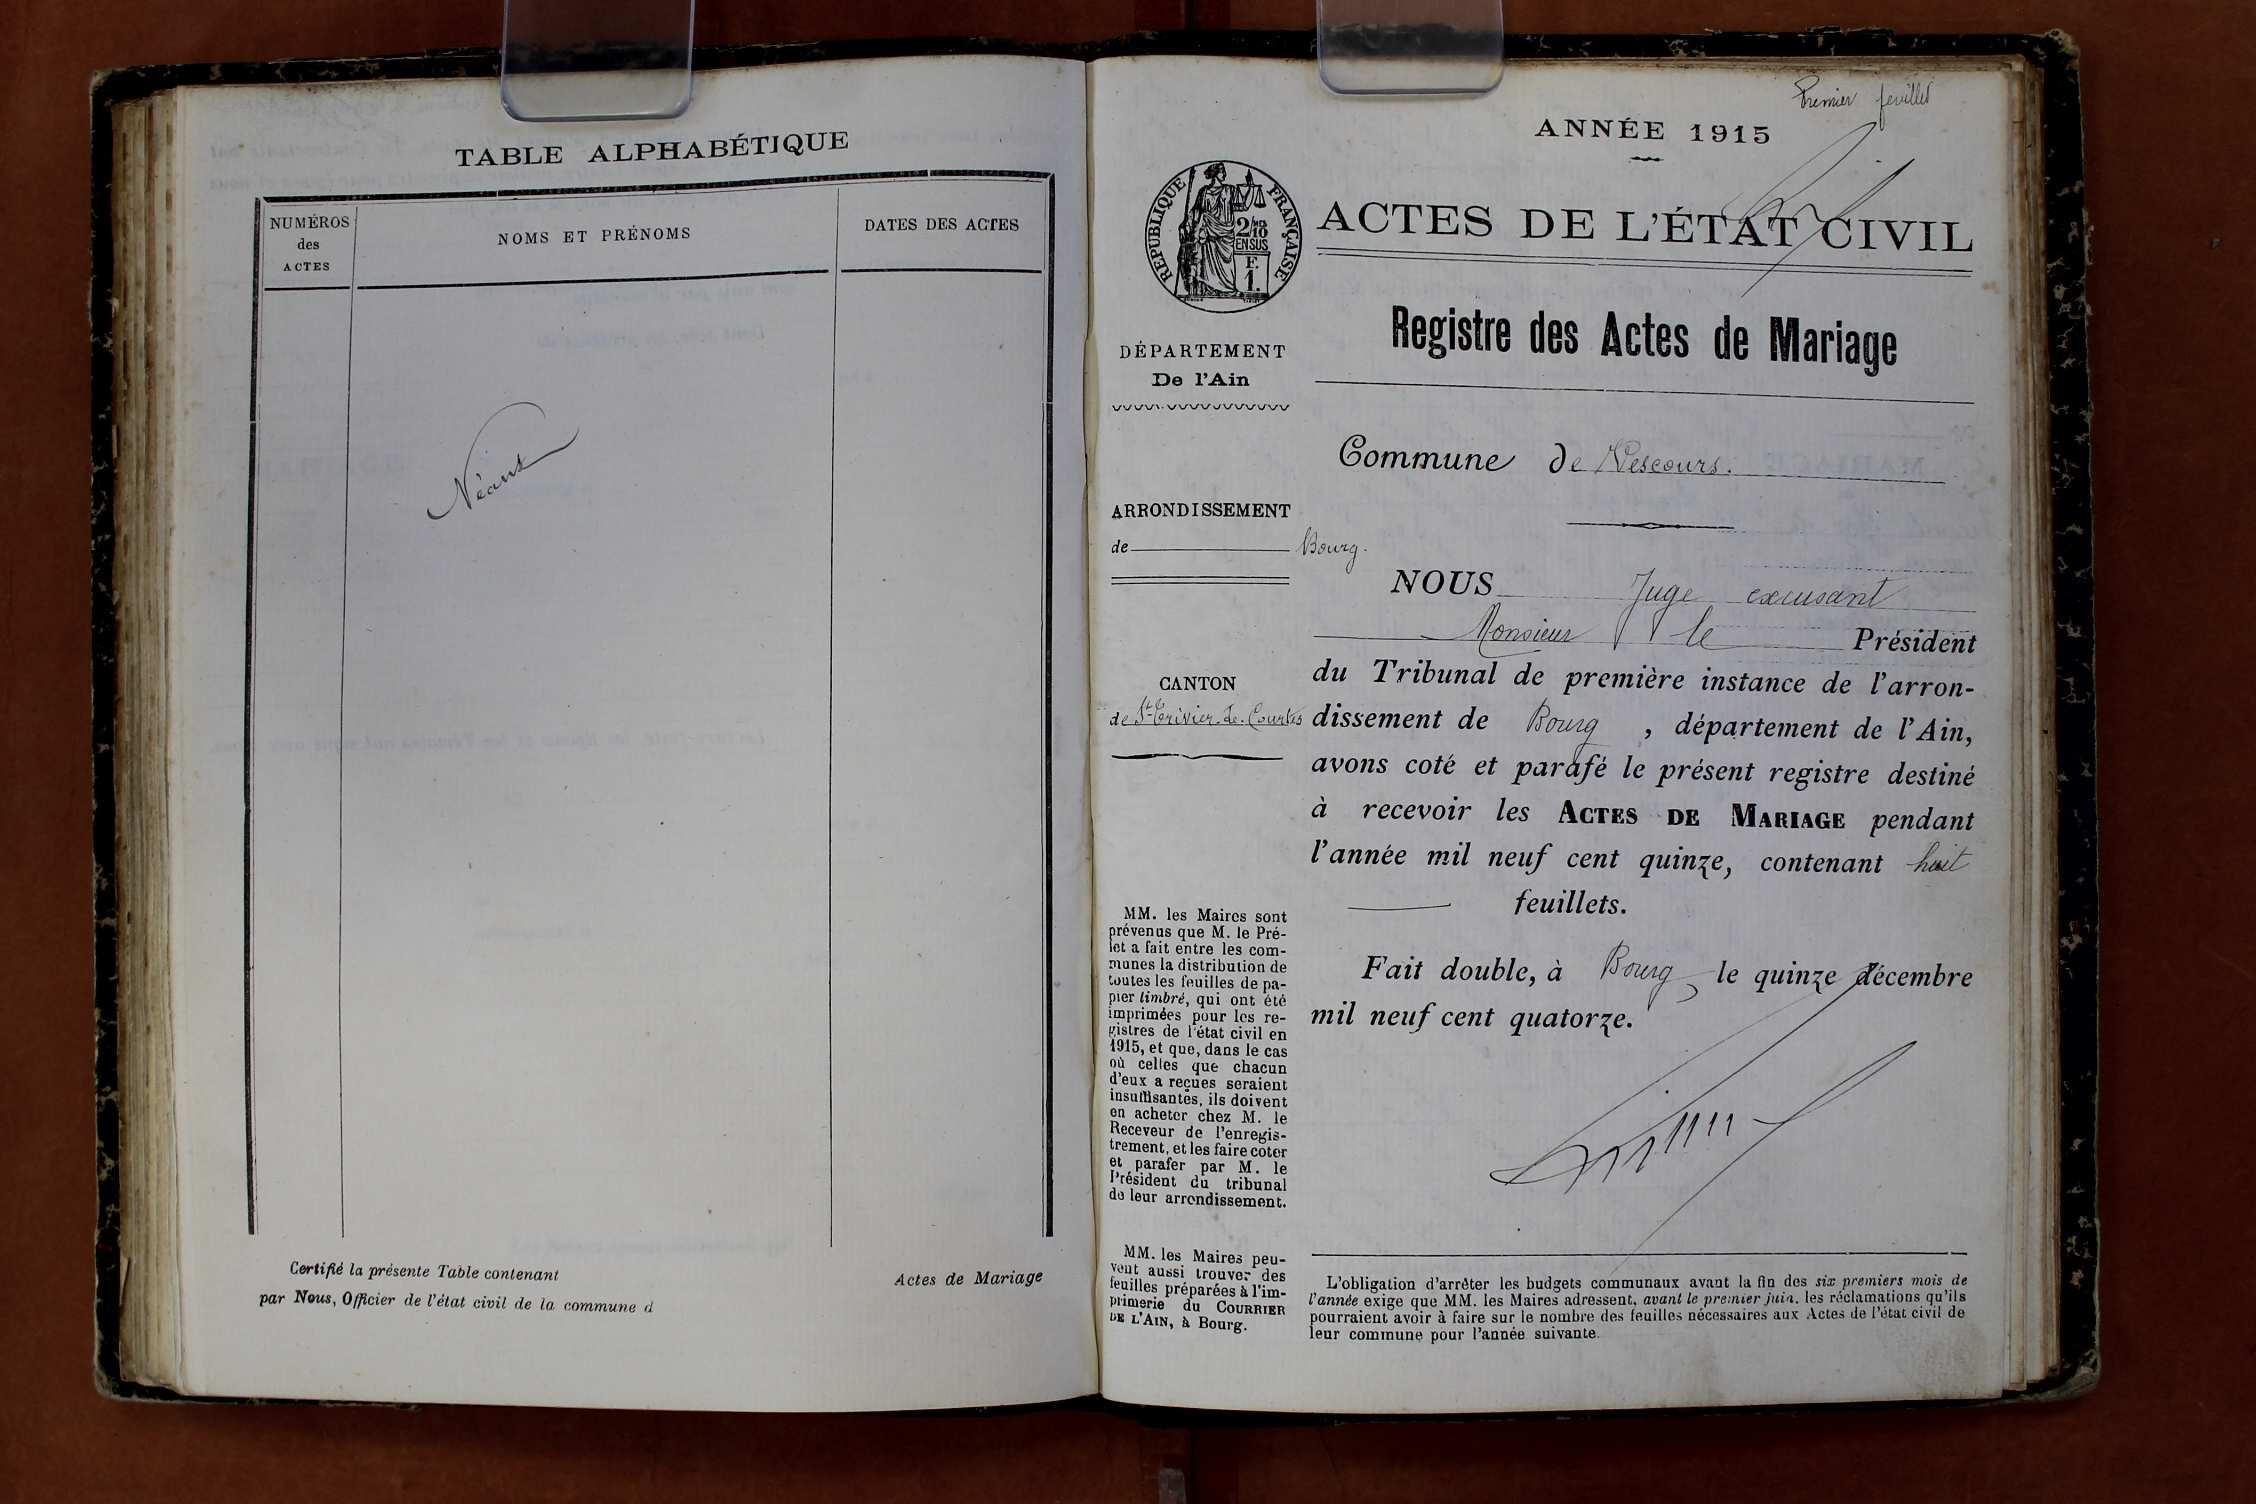 TABLE ALPHABÉTIQUE
NUMÉROS
des
ACTES
NOMS ET PRÉNOMS
DATES DES ACTES
Néant
Certifié la présente Table contenant
par Nous, Officier de l'état civil de la commune d
Actes de Mariage
Premier feuillet
ANNÉE 1915
RÉPUBLIQUE FRANÇAISE
2/10
EN SUS
F.
1.
ACTES DE L'ÉTAT CIVIL
Registre des Actes de Mariage
DÉPARTEMENT
De l'Ain
Commune de Vescours.
ARRONDISSEMENT
de Bourg.
CANTON
de St Trivier-de-Courtes
NOUS Juge excusant
Monsieur le Président
du Tribunal de première instance de l'arron-
dissement de Bourg, département de l'Ain,
avons coté et parafé le présent registre destiné
à recevoir les ACTES DE MARIAGE pendant
l'année mil neuf cent quinze, contenant huit
feuillets.
Fait double, à Bourg le quinze décembre
mil neuf cent quatorze.
MM. les Maires sont
prévenus que M. le Pré-
fet a fait entre les com-
munes la distribution de
toutes les feuilles de pa-
pier timbré, qui ont été
imprimées pour les re-
gistres de l'état civil en
1915, et que, dans le cas
où celles que chacun
d'eux a reçues seraient
insuffisantes, ils doivent
en acheter chez M. le
Receveur de l'enregis-
trement, et les faire coter
et parafer par M. le
Président du tribunal
de leur arrondissement.
MM. les Maires peu-
vent aussi trouver des
feuilles préparées à l'im-
primerie du COURRIER
DE L'AIN, à Bourg.
L'obligation d'arrêter les budgets communaux avant la fin des six premiers mois de
l'année exige que MM. les Maires adressent, avant le premier juin, les réclamations qu'ils
pourraient avoir à faire sur le nombre des feuilles nécessaires aux Actes de l'état civil de
leur commune pour l'année suivante.